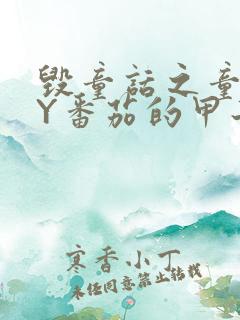 毁童话之童
Y番茄的甲
寒香小丁
未经同意禁止转载